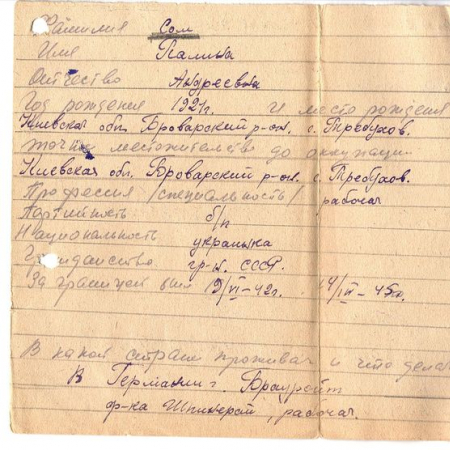 Фамилия Сом
Имя Галина
Отчество Андреевна
Год рождения 1921г. и место рождения
Киевская обл. Броварский р-он. с. Требухов.
точное местожительство до оккупации
Киевская обл. Броварский р-он. с. Требухов.
Профессия /специальность/ рабочая
Партийность б/п
Национальность украинка
Гражданство гр-ка СССР.
За границей был 19/VI-42г. 14/III-45г.
В какой стране проживал и что делал
В Германии г.
ф-ка рабочая.